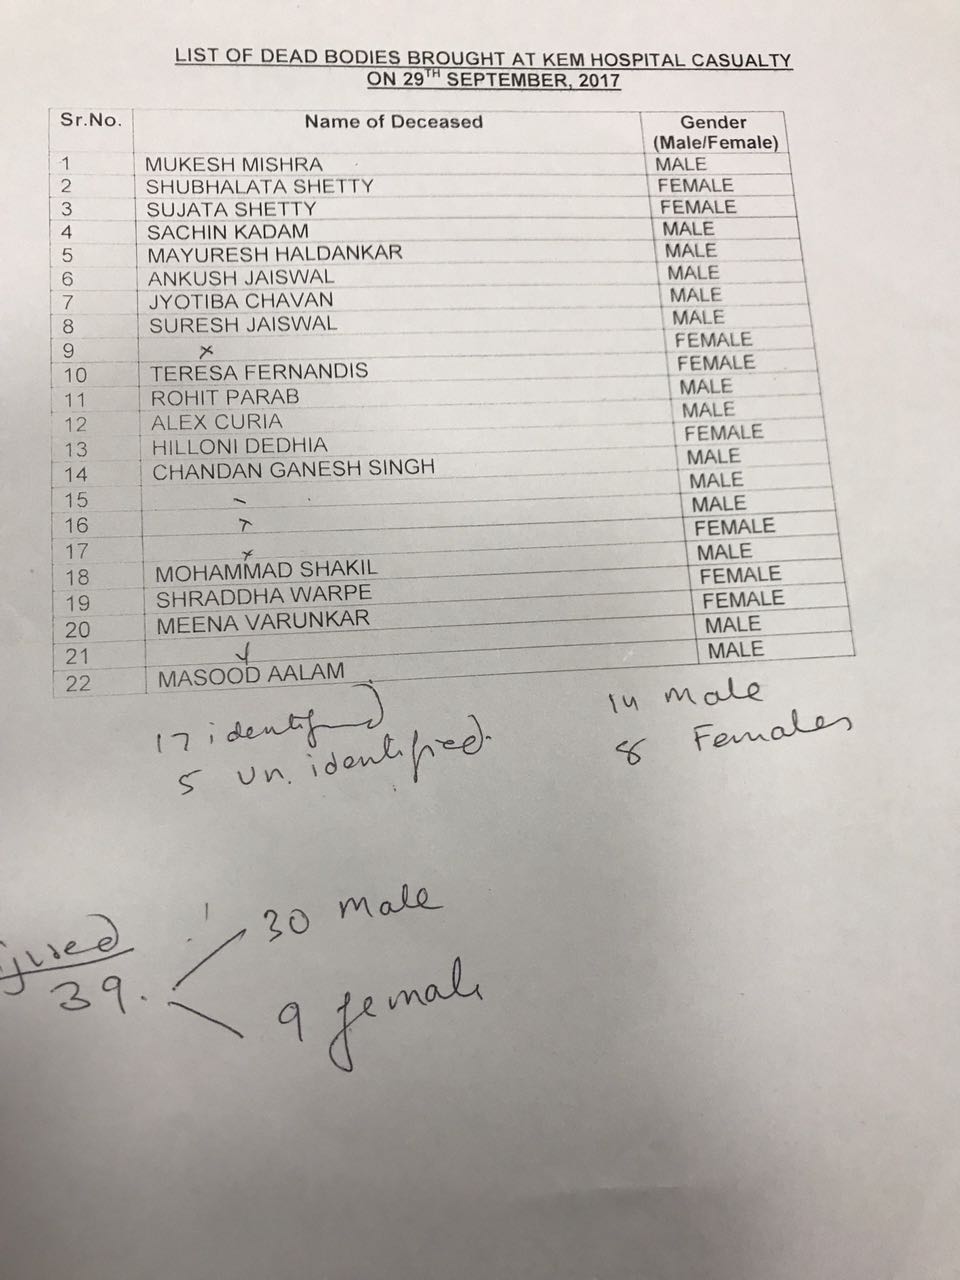 LIST OF DEAD BODIES BROUGHT AT KEM HOSPITAL CASUALTY
ON 29TH SEPTEMBER, 2017
Sr.No. Name of Deceased Gender (Male/Female)
1 MUKESH MISHRA MALE
2 SHUBHALATA SHETTY FEMALE
3 SUJATA SHETTY FEMALE
4 SACHIN KADAM MALE
5 MAYURESH HALDANKAR MALE
6 ANKUSH JAISWAL MALE
7 JYOTIBA CHAVAN MALE
8 SURESH JAISWAL MALE
9 x FEMALE
10 TERESA FERNANDIS FEMALE
11 ROHIT PARAB MALE
12 ALEX CURIA MALE
13 HILLONI DEDHIA FEMALE
14 CHANDAN GANESH SINGH MALE
15 MALE
16 MALE
17 x FEMALE
18 MOHAMMAD SHAKIL MALE
19 SHRADDHA WARPE FEMALE
20 MEENA VARUNKAR FEMALE
21 MALE
22 MASOOD AALAM MALE
17 identified 14 male
5 un. identified. 8 Females
jured
39. 30 male
9 female